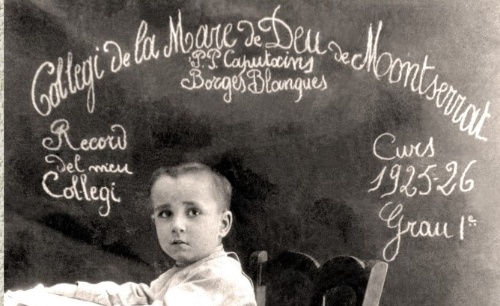 Collegi de la Mare de Deu de Montserrat
P.P. Caputxins
Borges Blanques
Record
del meu
Collegi
Curs
1925-26
Grau 1e